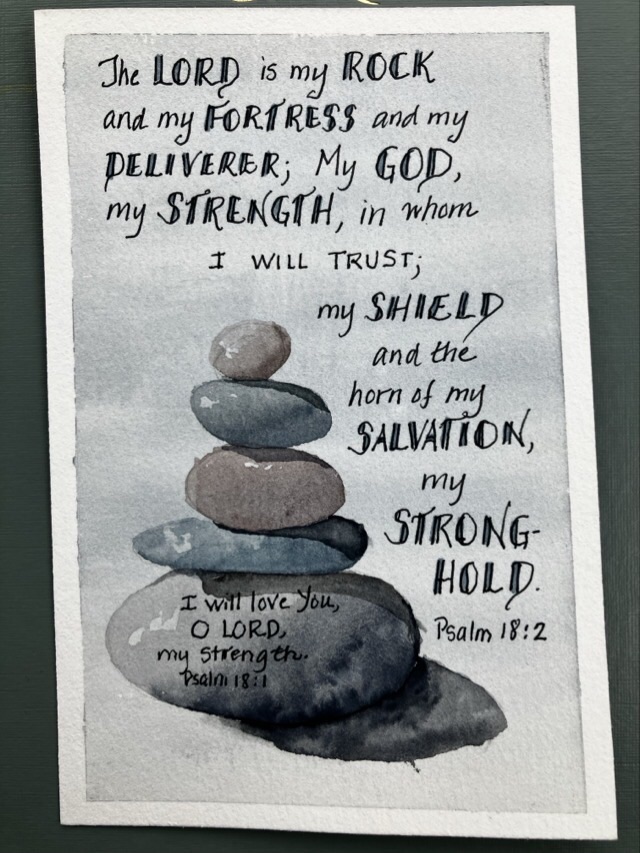 The LORD is my ROCK
and my FORTRESS and my
DELIVERER; My GOD,
my STRENGTH, in whom
I WILL TRUST;
my SHIELD
and the
horn of my
SALVATION,
my
STRONG-
HOLD.
Psalm 18:2
I will love You,
O LORD,
my strength.
Psalm 18:1